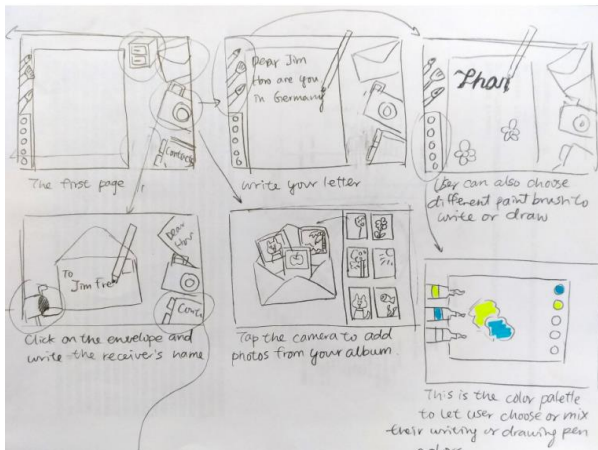 Contacts
The first page
Dear Jim
How are you
in Germany
write your letter
Thai
User can also choose
different paint brush to
write or draw
Dear
How
To
Jim fre
Conta
Click on the envelope and
write the receiver's name
Tap the camera to add
photos from your album.
This is the color palette
to let user choose or mix
their writing or drawing pen